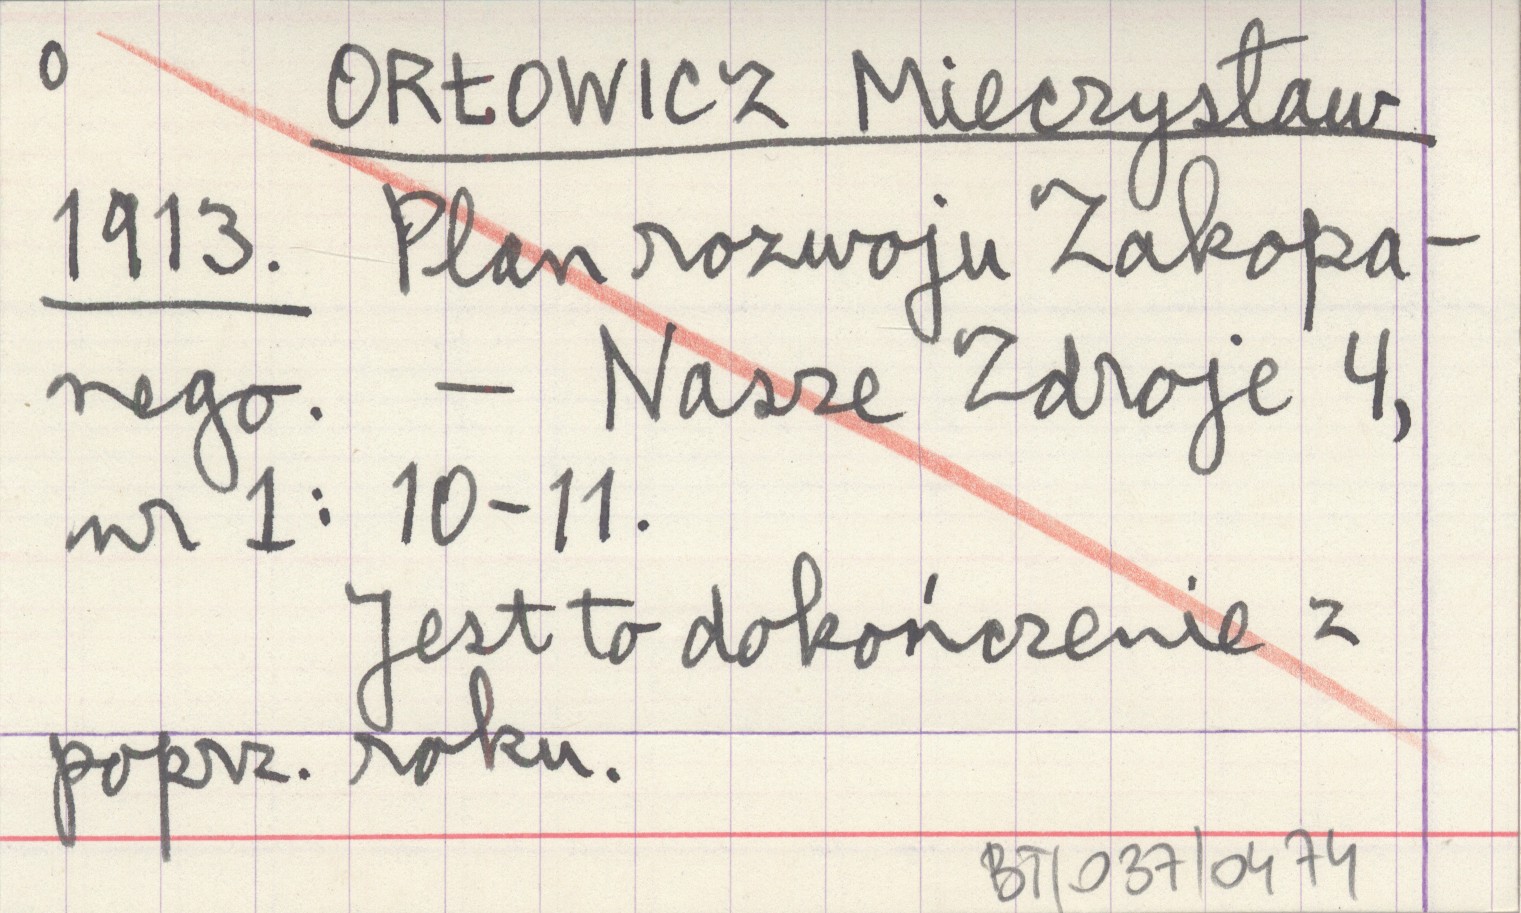 o ORŁOWICZ Mieczysław
1913. Plan rozwoju Zakopa-
nego. — Nasze Zdroje 4,
nr 1: 10-11.
Jest to dokończenie z
poprz. roku.
BT/037/0474